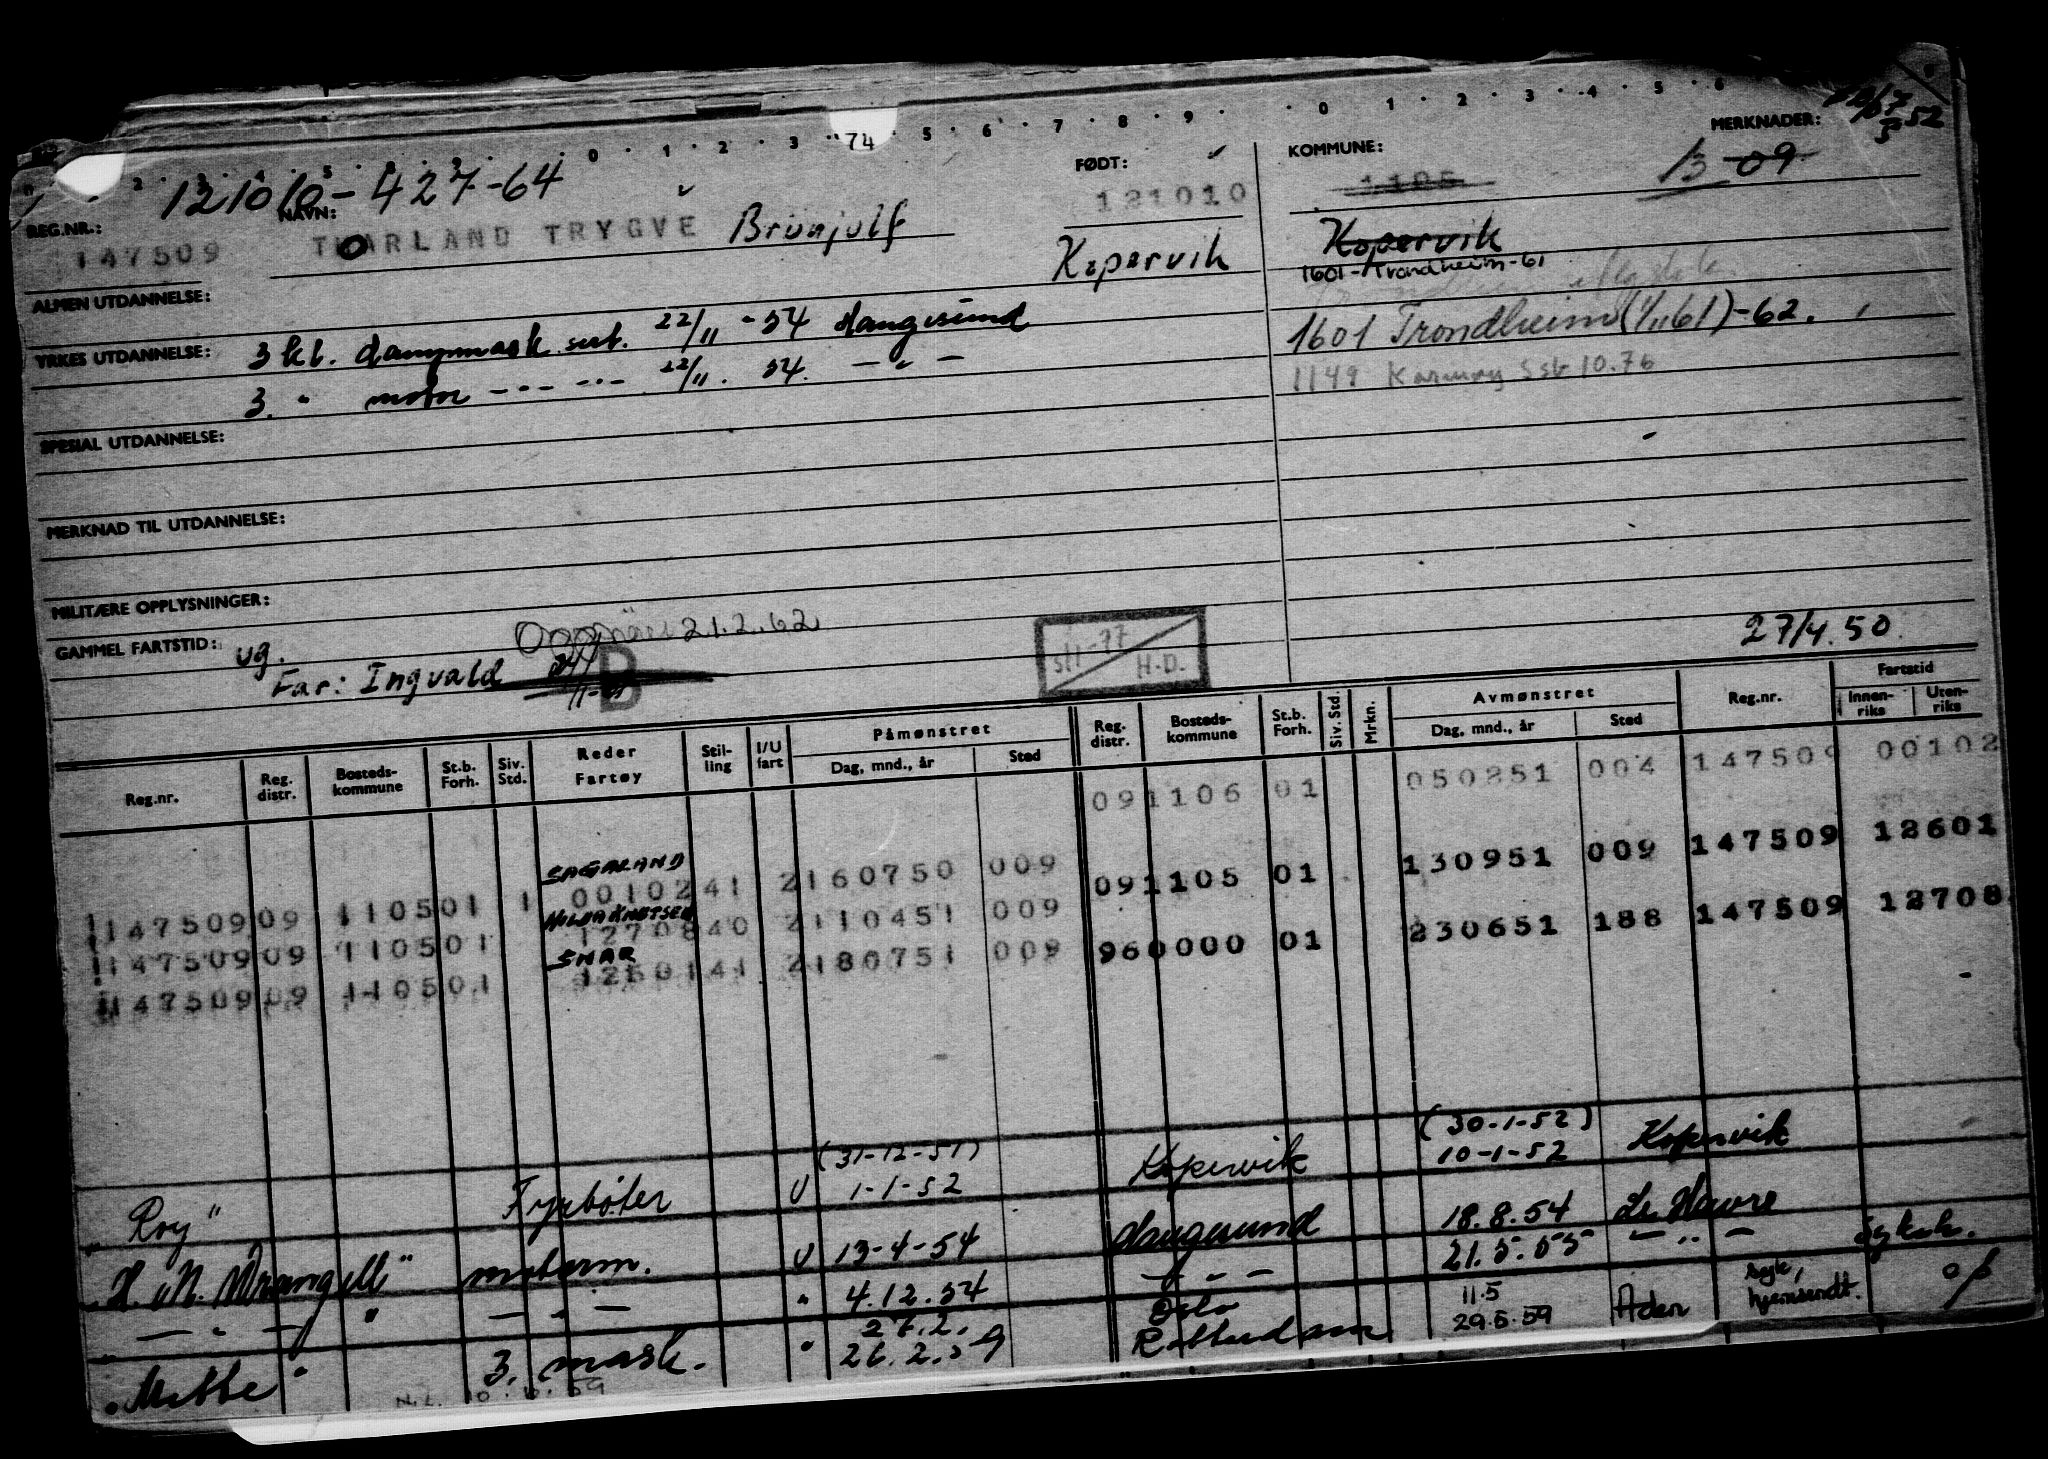 74
MERKNADER:
52
121010-427-64
FØDT:
KOMMUNE:
13-09
REG.NR.:
NAVN:
147509
THORLAND TRYGVE Brunjulf
121010
1105
Kopervik
Kopervik
1601-Trondheim-61
ALMEN UTDANNELSE:
YRKES UTDANNELSE:
3 kl. dampmask. sert. 22/11-54 Haugesund
1601 Trondheim (1/11 61)-62.
3. " motor --- --- 22/11. 54. - " -
1149 Karmøy Sst 10.76
SPESIAL UTDANNELSE:
MERKNAD TIL UTDANNELSE:
MILITÆRE OPPLYSNINGER:
GAMMEL FARTSTID:
ug.
21.2.62
27/4.50
Far: Ingvald
B
H.D.
Reg.nr.
Reg. distr.
Bosteds-kommune
St.b. Forh.
Siv. Std.
Reder Fartøy
Stil-ling
I/U fart
Påmønstret
Dag, mnd., år
Sted
Reg. distr.
Bosteds-kommune
St.b. Forh.
Siv. Std.
Mrkn.
Avmønstret
Dag, mnd., år
Sted
Reg.nr.
Fartstid
Innen-riks
Uten-riks
091106 01 050251 004 147509 00102
SAGALAND
1147509 09 110501 1 00102 41 2 160750 009
091105 01 130951 009 147509 12601
HILDA KNUTSEN
1147509 09 110501 12708 40 2 110451 009
960000 01 230651 188 147509 12708
SNAR
1147509 09 110501 12601 41 2 180751 009
"Roy" Fyrbøter U (31-12-51) 1-1-52 Kopervik (30-1-52) 10-1-52 Kopervik
"H. M. Wrangell" motorm. U 13-4-54 Haugesund 18.8.54 Le Havre
- " - " - " - " 4.12.54 - " - 21.5.55 - " - sykeh.
"Mette" 3. mask. " 27.2. 26.2.59 Oslo Rotterdam 11.5 29.5.59 Aden syk, hjemsendt.